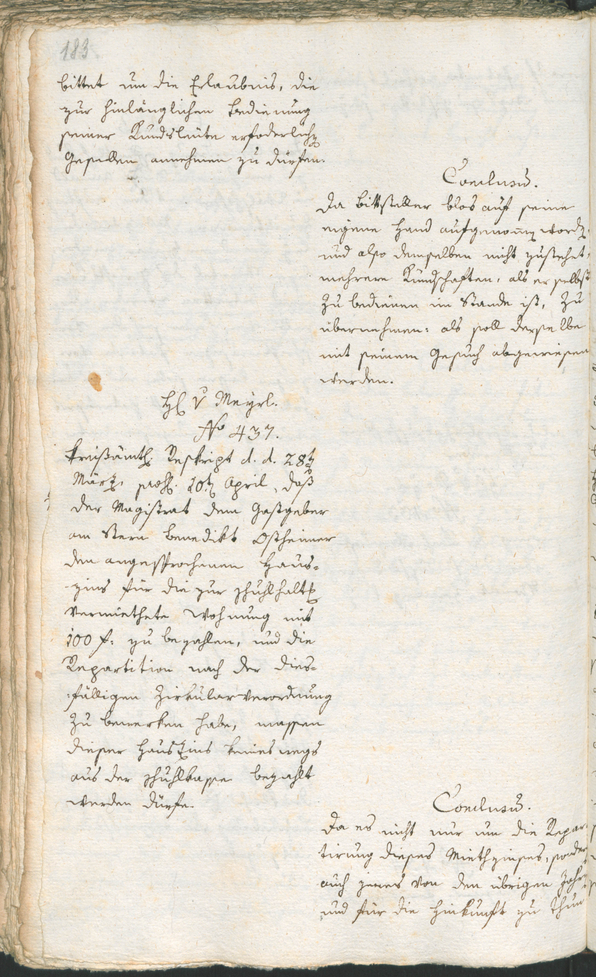 183.
bittet um die Erlaubnis, die
zur hinlänglichen Bedienung
seiner Kundsleute erforderliche
Gesellen annehmen zu dürfen.
Conclusum.
Da Bittsteller blos auf seine
eigene Hand aufgenomen worden,
und also demselben nicht zustehet,
mehrere Kundschaften, als er selbst
zu bedienen im Stande ist, zu
übernehmen: als soll derselbe
mit seinem Gesuch abgewiesen
werden.
H. v Meyrl.
No 437.
Kreisämtl. Reskript d. d. 28t
März, 20t April, daß
der Magistrat dem Gastgeber
am Stern Benedikt Ostheimer
den angesprochenen Haus-
zins für die zur Schulhalt
vermiethete Wohnung mit
100 f. zu bezahlen, und die
Repartition nach der dies-
fälligen Zirkularverordnung
zu bewerken habe, massen
dieser Hauszins keineswegs
aus der Schulkasse bezahlt
werden dürfe.
Conclusum.
Da es nicht nur um die Repar-
tirung dieses Miethzinses, sonder
auch jenes von den übrigen Jahr
und für die Hinkunft zu thun